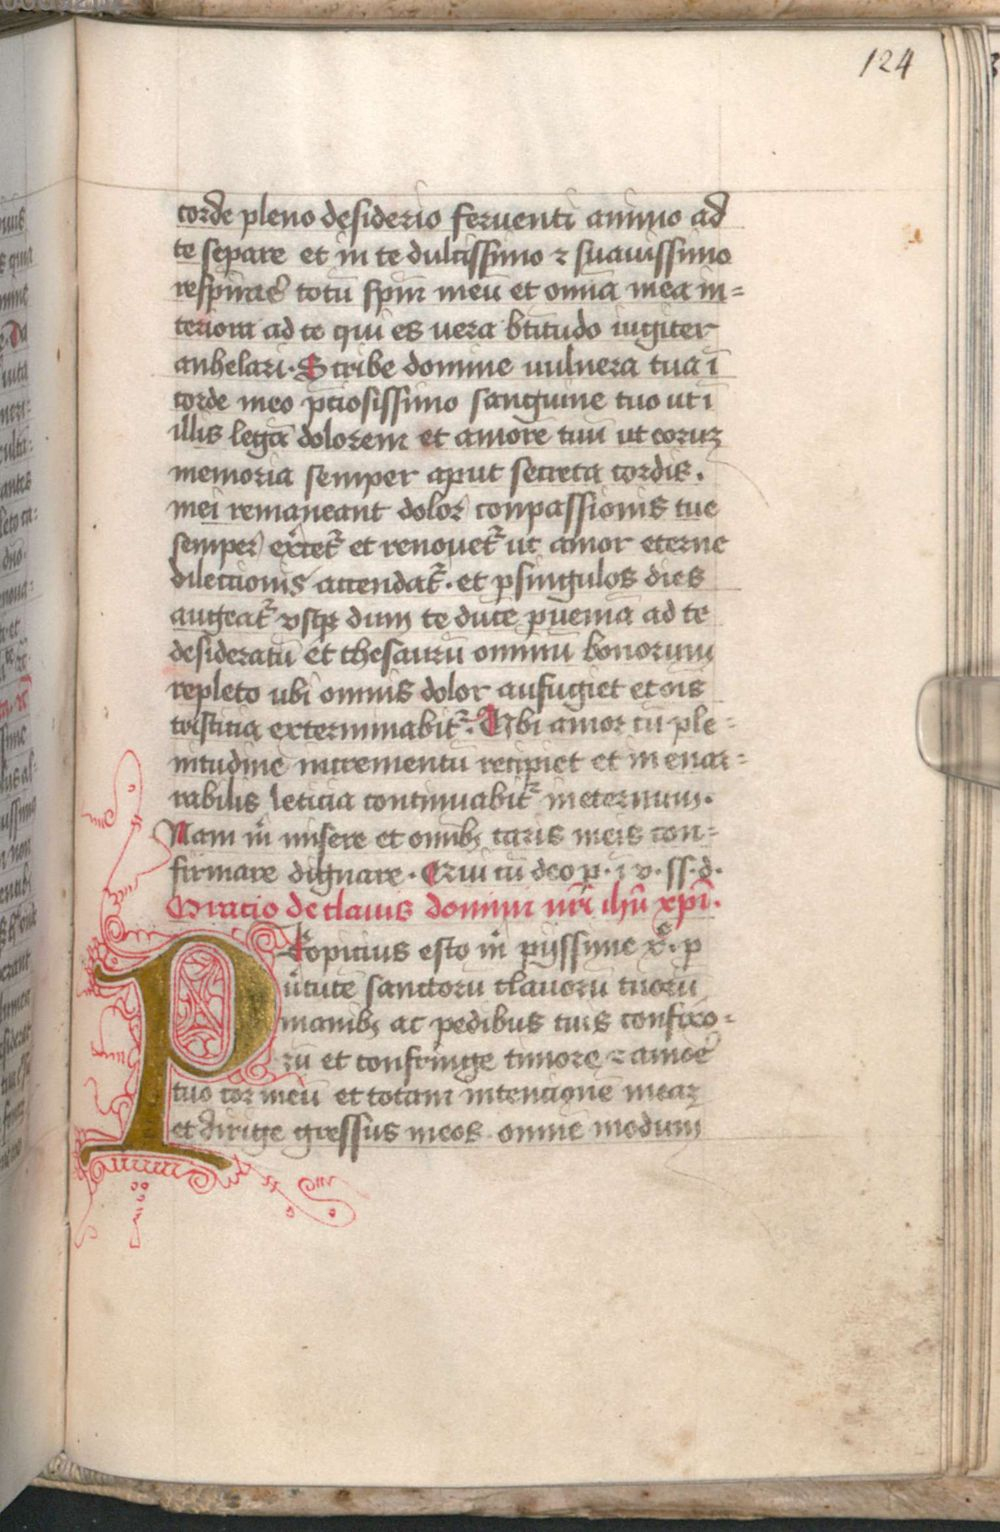 124
corde pleno desiderio feruenti animo ad
te separe et in te dulcissimo ⁊ suauissimo
respirare totū spm̄ meū et om̄ia mea in=
teriora ad te qui es vera bt̄itudo iugiter
anhelari. Scribe domine uulnera tua ī
corde meo p̄ciosissimo sanguine tuo ut ī
illis legā dolorem et amorē tuū ut eorum
memoria semper aput secreta cordis.
mei remaneant dolor conpassionis tue
semper et renouet᷑ ut amor eterne
dilectionis accendat᷑. et ꝑ singulos dies
augeat᷑ vsq̨ dum te duce ꝑueniā ad te
desideratū et thesaurū omniū bonorum
repleto ubi omnis dolor aufugiet et oīs
tristicia exterminabit᷑. Ubi amor cū ple=
nitudine incrementū recipiet et in enar=
rabilis leticia continuabit᷑ in eternum.
Nam m̄ misere et omībꝫ caris meis con=
firmare dignare. Qui cū deo p. ⁊ v. ss. d.
Oracio de clauis domini nr̄i ihū xpī.
Propicius esto m̄ pijssime xē. ꝑ
ūtutē sanctorū clauorū tuorū
manibꝫ ac pedibus tuis confixo=
rū et confringe timore ⁊ amore
tuo cor meū et totam intencionē meam
et dirige gressus meos omnē modum